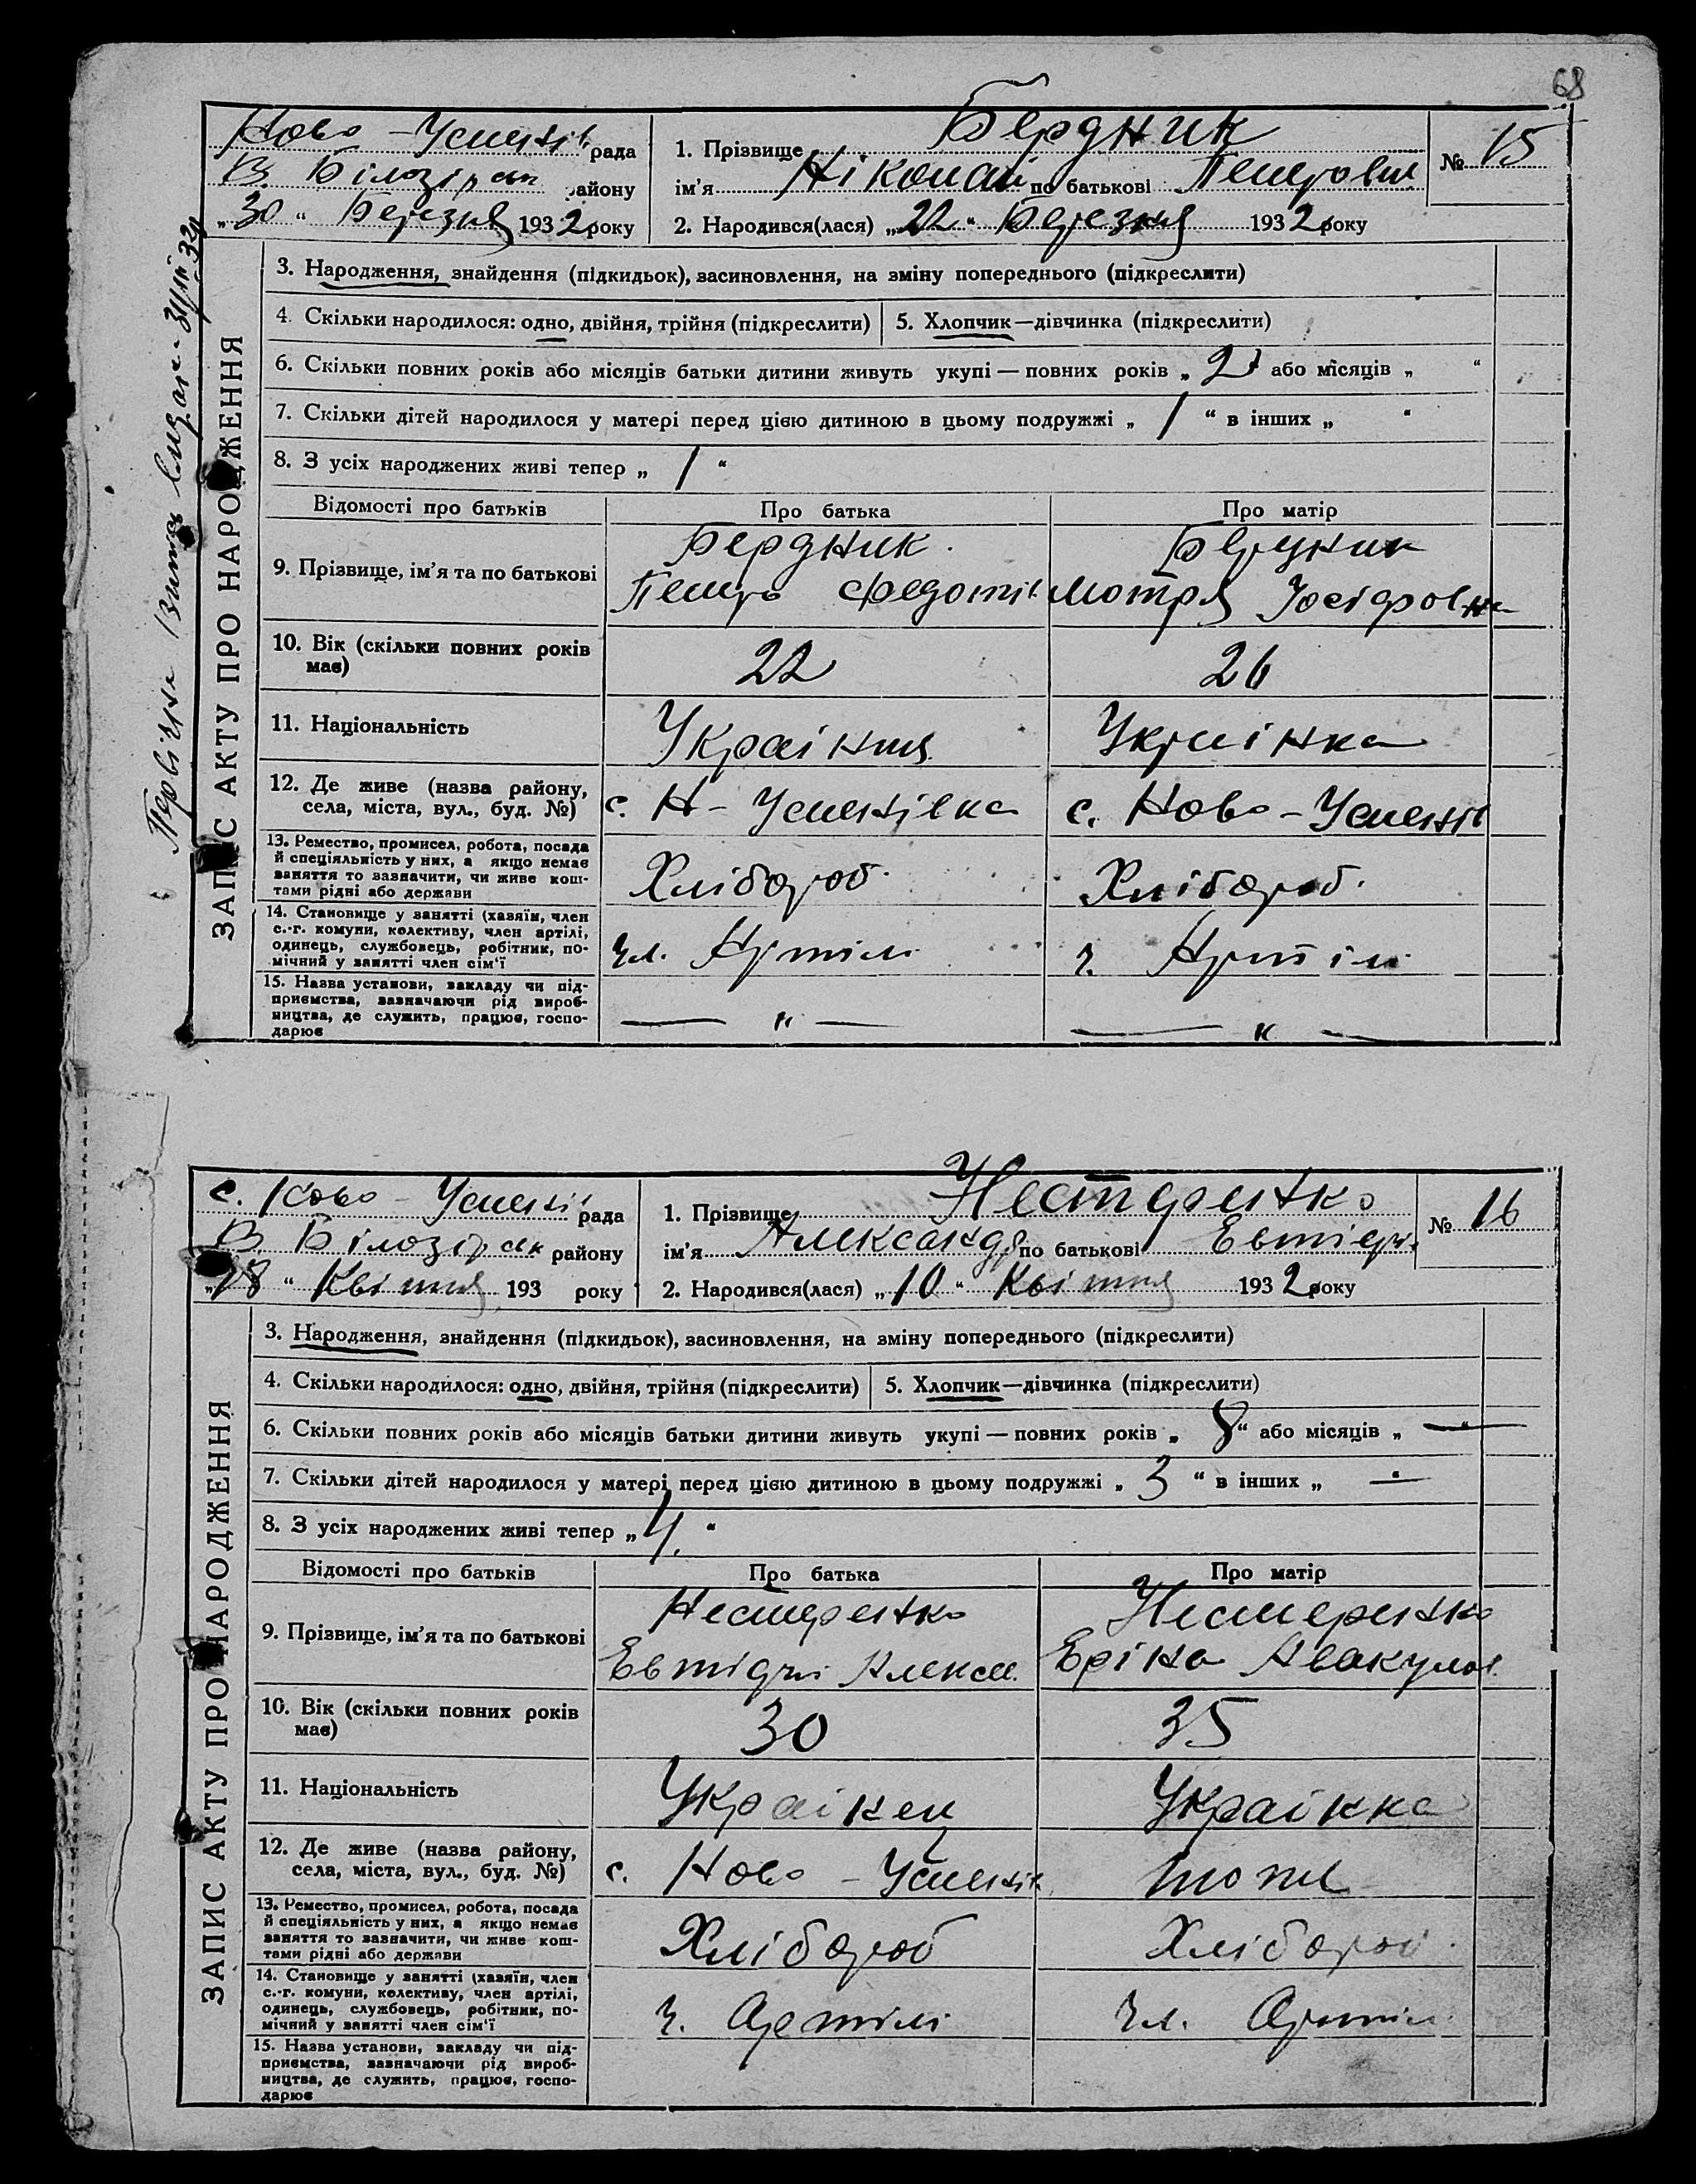 68
Ново-Успенів. рада
В. Білозірськ району
„30“ Березня 1932 року
1. Прізвище Бердник
ім'я Ніколай по батькові Петрович
№ 15
2. Народився(лася) „22“ Березня 1932 року
ЗАПИС АКТУ ПРО НАРОДЖЕННЯ
3. Народження, знайдення (підкидьок), засиновлення, на зміну попереднього (підкреслити)
4. Скільки народилося: одно, двійня, трійня (підкреслити) 5. Хлопчик—дівчинка (підкреслити)
6. Скільки повних років або місяців батьки дитини живуть укупі — повних років „ 2 або місяців „ “
7. Скільки дітей народилося у матері перед цією дитиною в цьому подружжі „ 1 “ в інших „ “
8. З усіх народжених живі тепер „ 1 “
Відомості про батьків Про батька Про матір
9. Прізвище, ім'я та по батькові
Бердник Петро Федотів
Бердник Мотря Йосіфовна
10. Вік (скільки повних років має) 22 26
11. Національність Українця Українка
12. Де живе (назва району, села, міста, вул., буд. №)
с. Н-Успенівка с. Ново-Успенів
13. Ремество, промисел, робота, посада
й спеціяльність у них, а якщо немає
заняття то зазначити, чи живе кош-
тами рідні або держави
Хлібороб Хлібороб.
14. Становище у занятті (хазяїн, член
с.-г. комуни, колективу, член артілі,
одинець, службовець, робітник, по-
мічний у занятті член сім'ї
чл. Артіли ч. Артіли
15. Назва установи, закладу чи під-
приємства, зазначаючи рід вироб-
ництва, де служить, працює, госпо-
дарює
— " — — " —
с. Ново-Успенів рада
В. Білозірськ району
„18“ Квітня 193 року
1. Прізвище Нестеренко
ім'я Александр по батькові
№ 16
2. Народився(лася) „10“ Квітня 1932 року
ЗАПИС АКТУ ПРО НАРОДЖЕННЯ
3. Народження, знайдення (підкидьок), засиновлення, на зміну попереднього (підкреслити)
4. Скільки народилося: одно, двійня, трійня (підкреслити) 5. Хлопчик—дівчинка (підкреслити)
6. Скільки повних років або місяців батьки дитини живуть укупі — повних років „ 8 “ або місяців „ — “
7. Скільки дітей народилося у матері перед цією дитиною в цьому подружжі „ 3 “ в інших „ — “
8. З усіх народжених живі тепер „ 4. “
Відомості про батьків Про батька Про матір
9. Прізвище, ім'я та по батькові
Нестеренко Алексе.
Нестеренко Авакумов.
10. Вік (скільки повних років має) 30 35
11. Національність Українец Українка
12. Де живе (назва району, села, міста, вул., буд. №)
с. Ново-Успенів тоже
13. Ремество, промисел, робота, посада
й спеціяльність у них, а якщо немає
заняття то зазначити, чи живе кош-
тами рідні або держави
Хлібороб Хлібороб.
14. Становище у занятті (хазяїн, член
с.-г. комуни, колективу, член артілі,
одинець, службовець, робітник, по-
мічний у занятті член сім'ї
ч. Артілі чл. Артіли
15. Назва установи, закладу чи під-
приємства, зазначаючи рід вироб-
ництва, де служить, працює, госпо-
дарює